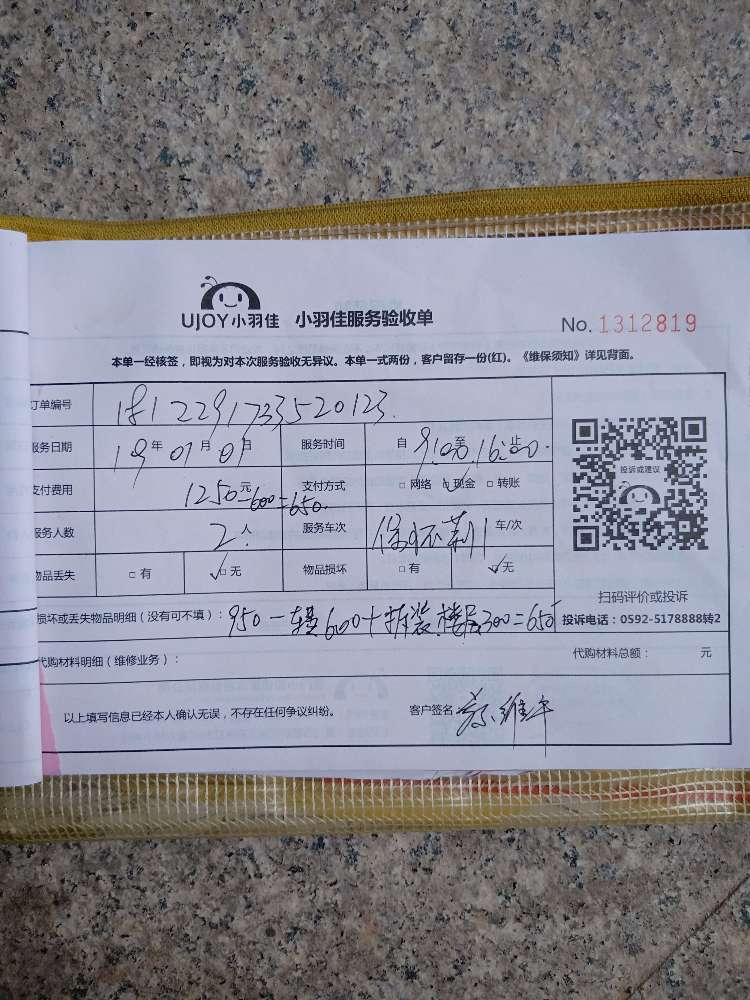 UJOY小羽佳 小羽佳服务验收单 No. 1312819
本单一经核签，即视为对本次服务验收无异议。本单一式两份，客户留存一份(红)。《维保须知》详见背面。
订单编号 181229173520123
服务日期 19年01月01日 服务时间 自9:00至16:00止
支付费用 1250元-600=650. 支付方式 □网络 ☑现金 □转账
服务人数 2人 服务车次 车/次
物品丢失 □有 ☑无 物品损坏 □有 ☑无
投诉或建议
扫码评价或投诉
损坏或丢失物品明细（没有可不填）： 950-600+拆装.楼层300=650
投诉电话：0592-5178888转2
代购材料明细（维修业务）： 代购材料总额： 元
以上填写信息已经本人确认无误，不存在任何争议纠纷。 客户签名